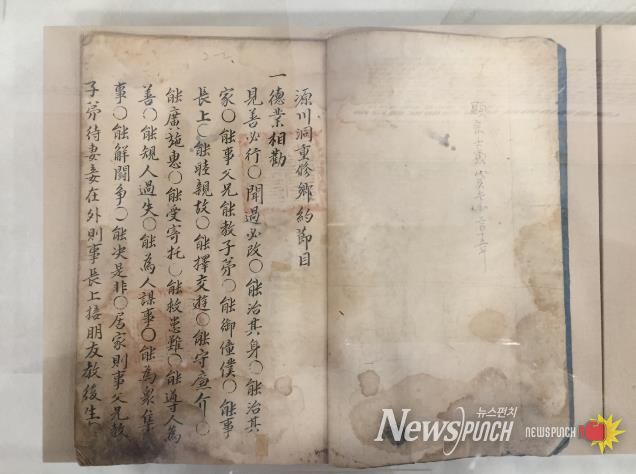 源川洞重修鄉約節目
一德業相勸
見善必行〇聞過必改〇能治其身〇能治其
家〇能事父兄能教子弟〇能御僮僕〇能事
長上〇能睦親故〇能擇交遊〇能守廉介〇
能廣施惠〇能受寄托〇能救患難〇能導人為
善〇能規人過失〇能為人謀事〇能為衆集
事〇能解鬪争〇能决是非〇居家則事父兄教
子弟待妻妾在外則事長上接朋友教後生
뉴스펀치
NEWSPUNCH
NEWSPUNCH